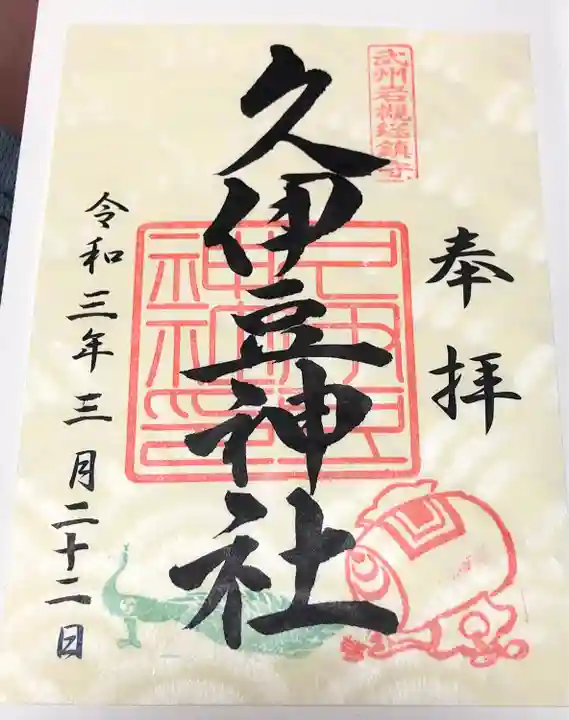 武州岩槻総鎮守
奉拝
久伊豆神社
令和三年三月二十二日